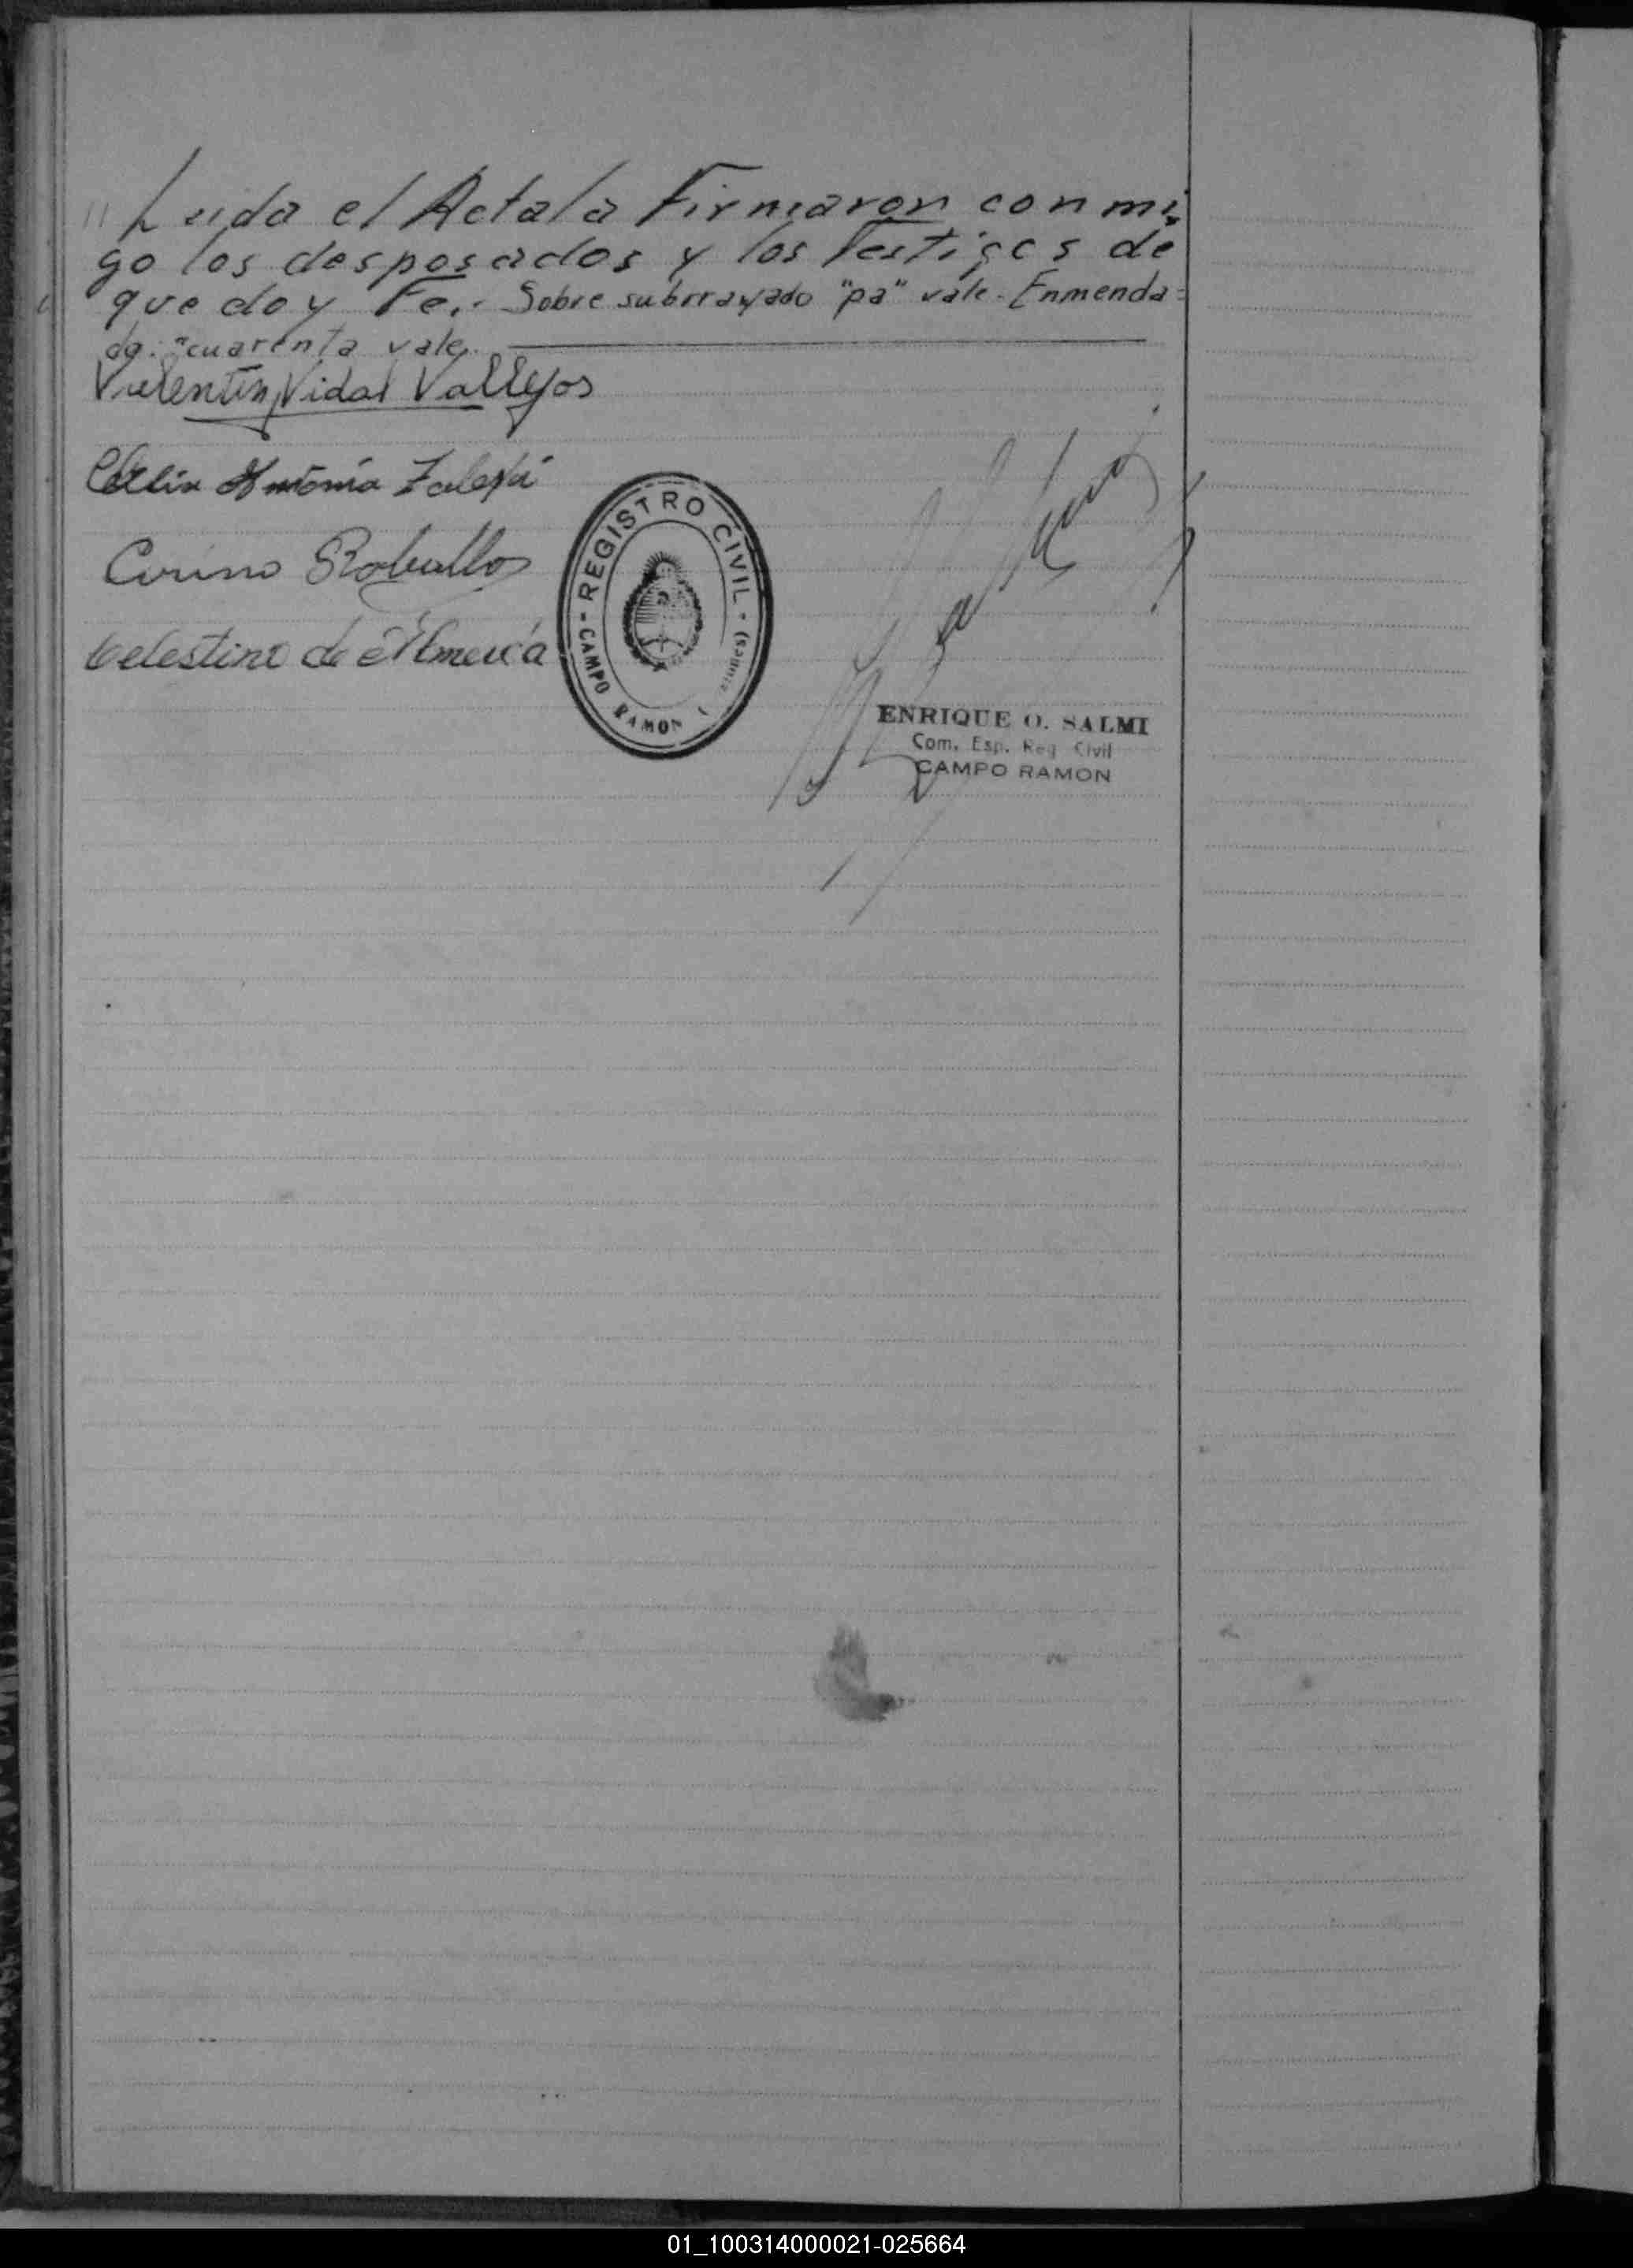 " Leida el Acta la Firmaron con mi
go los desposados y los Testigos de
que doy Fe.- Sobre suborrayado "pa" vale - Enmenda=
do: "cuarenta vale.
Valentin Vidal Vallejos
Antonia
Roballo
Celestino de
REGISTRO CIVIL
CAMPO RAMON (Misiones)
ENRIQUE O. SALMI
Com. Esp. Reg Civil
CAMPO RAMON
01_100314000021-025664